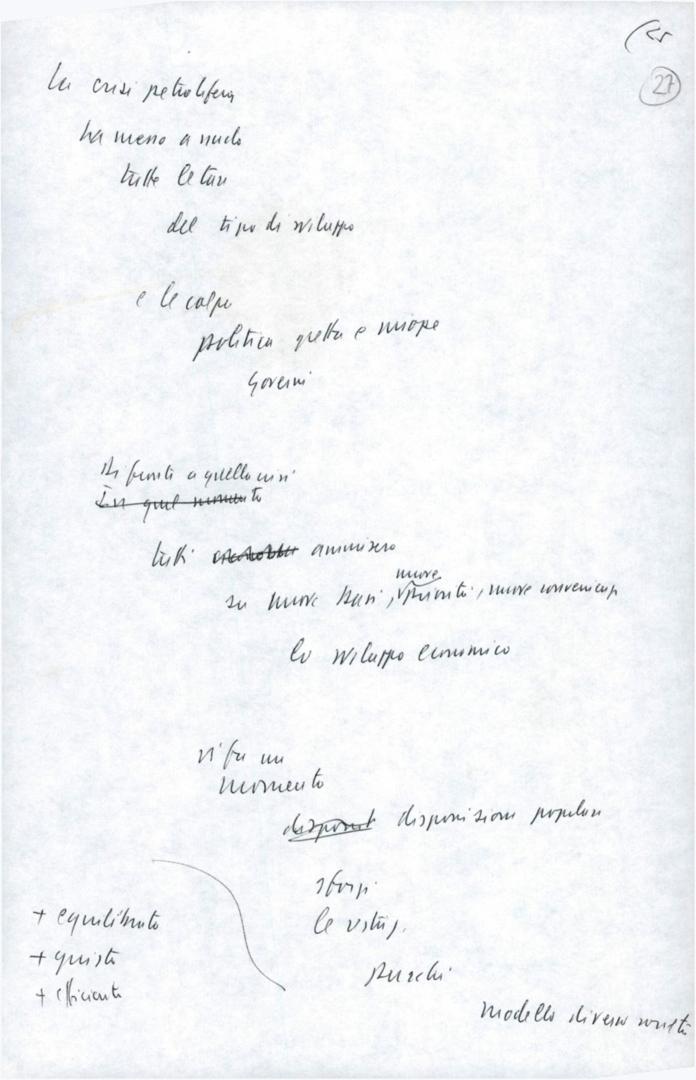 27
La crisi petrolifera
ha messo a nudo
tutte le tare
del tipo di sviluppo
e le colpe
politica gretta e miope
Governi
Di fronte a quella crisi
In quel momento
tutti ammisero
nuove
su nuove basi, priorità, nuove convenienze
lo sviluppo economico
vi fu un
momento
disponibi disposizione popolare
sforzi
le restriz.
Purché
+ equilibrato
+ giusto
+ efficiente
modello diverso società